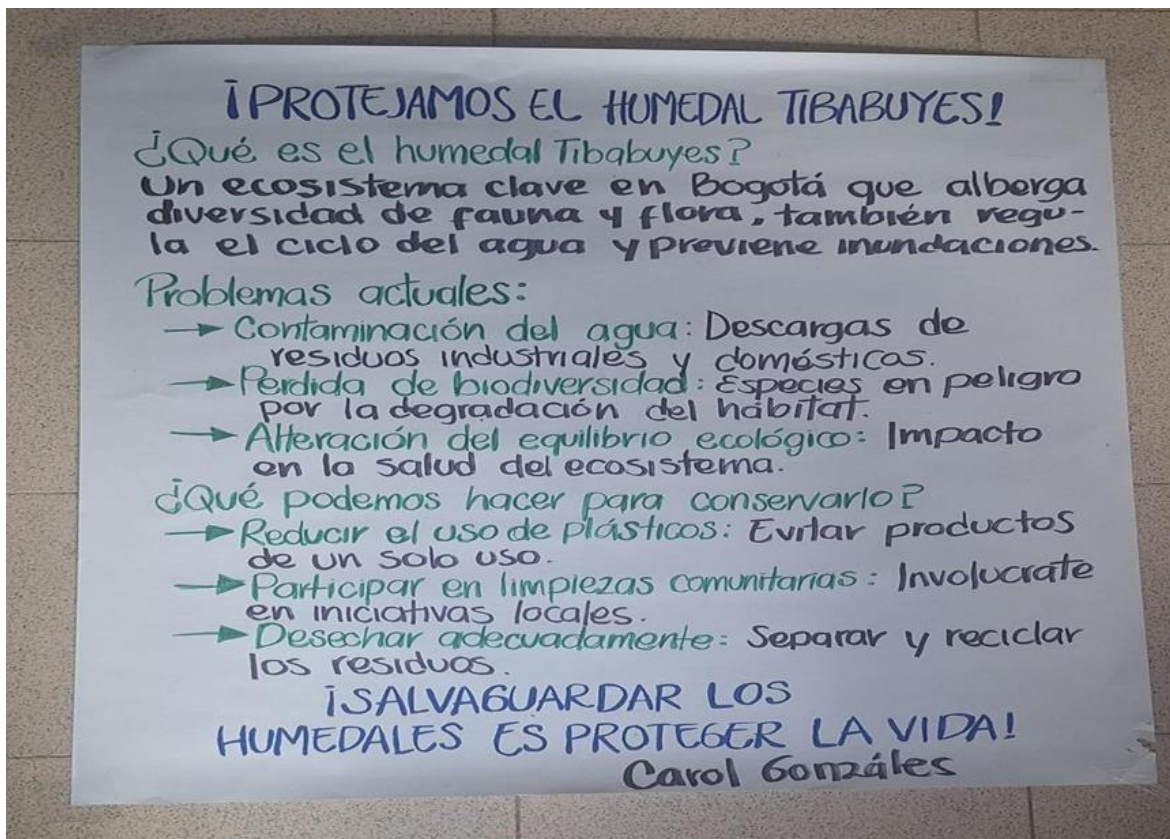 ¡PROTEJAMOS EL HUMEDAL TIBABUYES!
¿Qué es el humedal Tibabuyes?
Un ecosistema clave en Bogotá que alberga
diversidad de fauna y flora, también regu-
la el ciclo del agua y previene inundaciones.
Problemas actuales:
→ Contaminación del agua: Descargas de
residuos industriales y domésticas.
→ Perdida de biodiversidad: Especies en peligro
por la degradación del hábitat.
→ Alteración del equilibrio ecológico: Impacto
en la salud del ecosistema.
¿Qué podemos hacer para conservarlo?
→ Reducir el uso de plásticos: Evitar productos
de un solo uso.
→ Participar en limpiezas comunitarias: Involucrate
en iniciativas locales.
→ Desechar adecuadamente: Separar y reciclar
los residuos.
¡SALVAGUARDAR LOS
HUMEDALES ES PROTEGER LA VIDA!
Carol Gonzáles